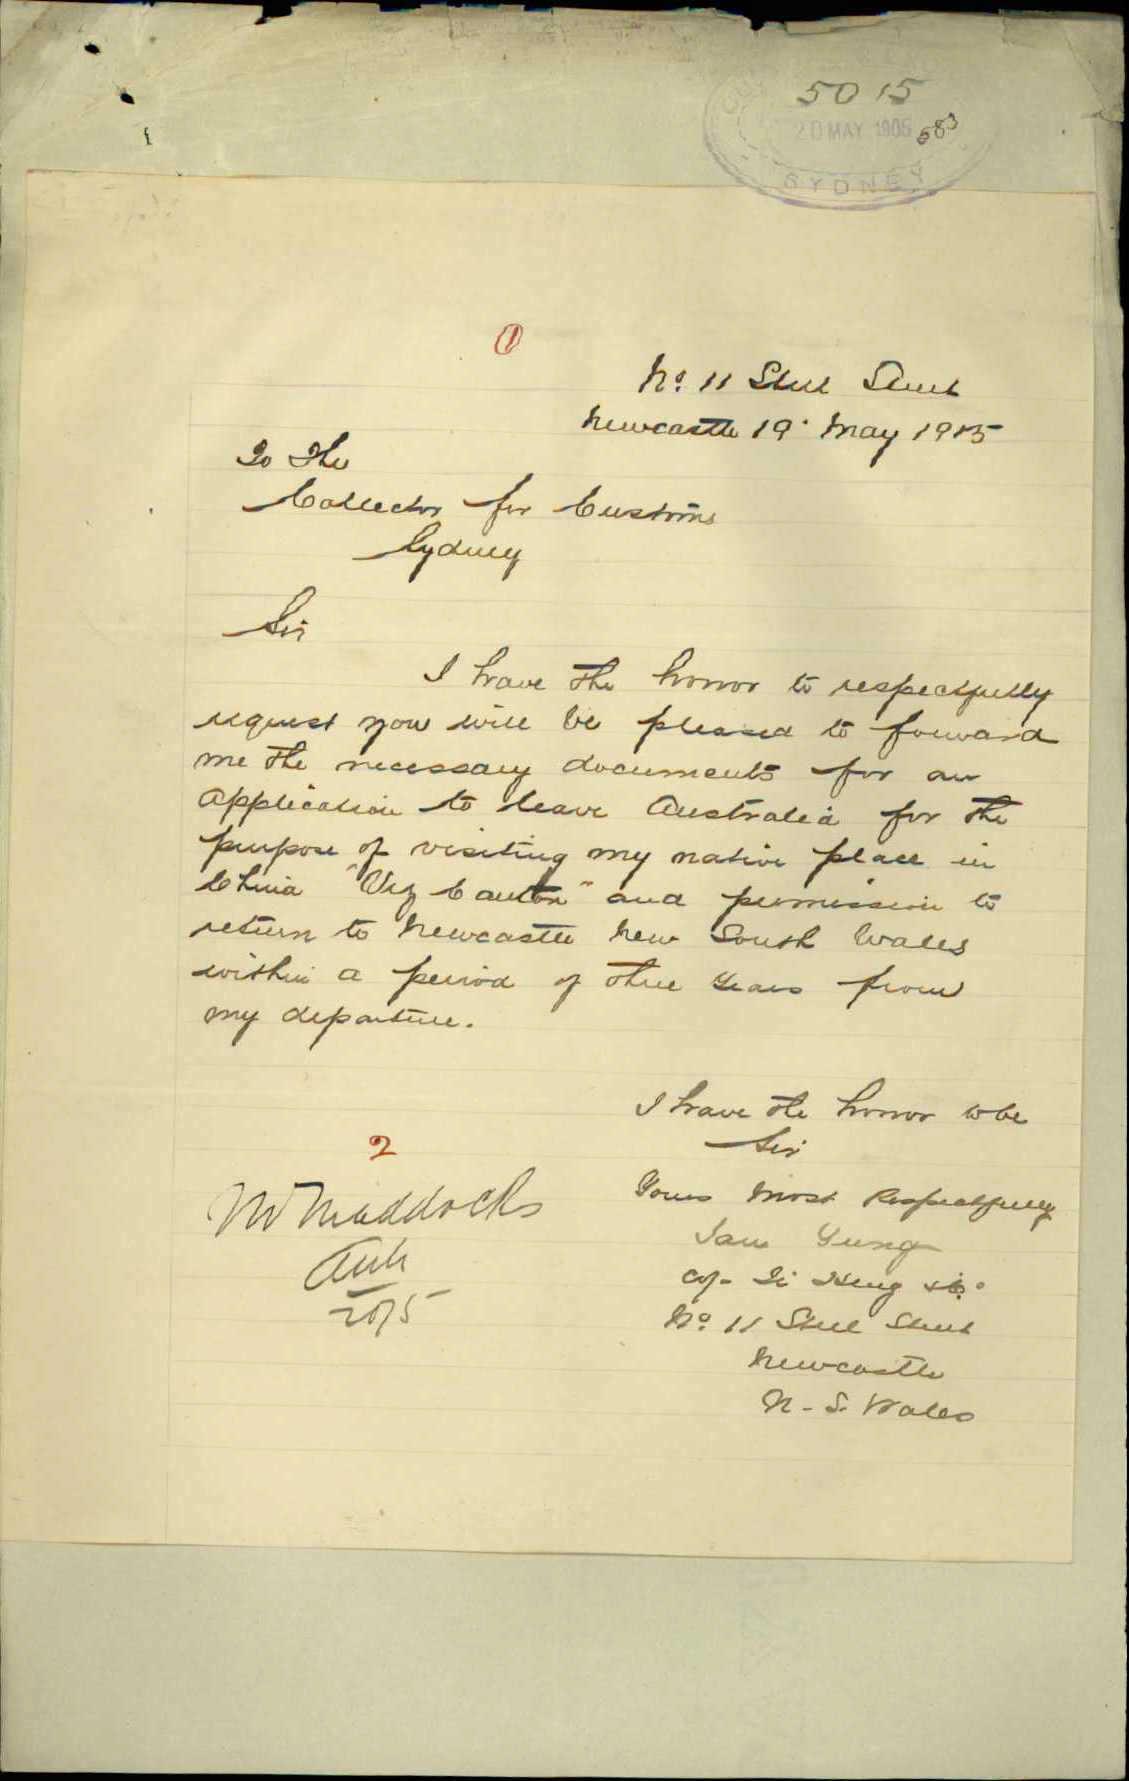 5015
20 MAY 1905 583
SYDNEY
1
No 11 Steel Street
Newcastle 19 May 1905
To The
Collector for Customs
Sydney
Sir
I have the honor to respectfully
request you will be pleased to forward
me the necessary documents for an
application to leave Australia for the
purpose of visiting my native place in
China "Viz Canton" and permission to
return to Newcastle New South Wales
within a period of three years from
my departure.
I have the honor to be
Sir
Yours Most Respectfully
Yung
No 11 Steel Street
Newcastle
N. S. Wales
2
Mr Maddocks
20/5